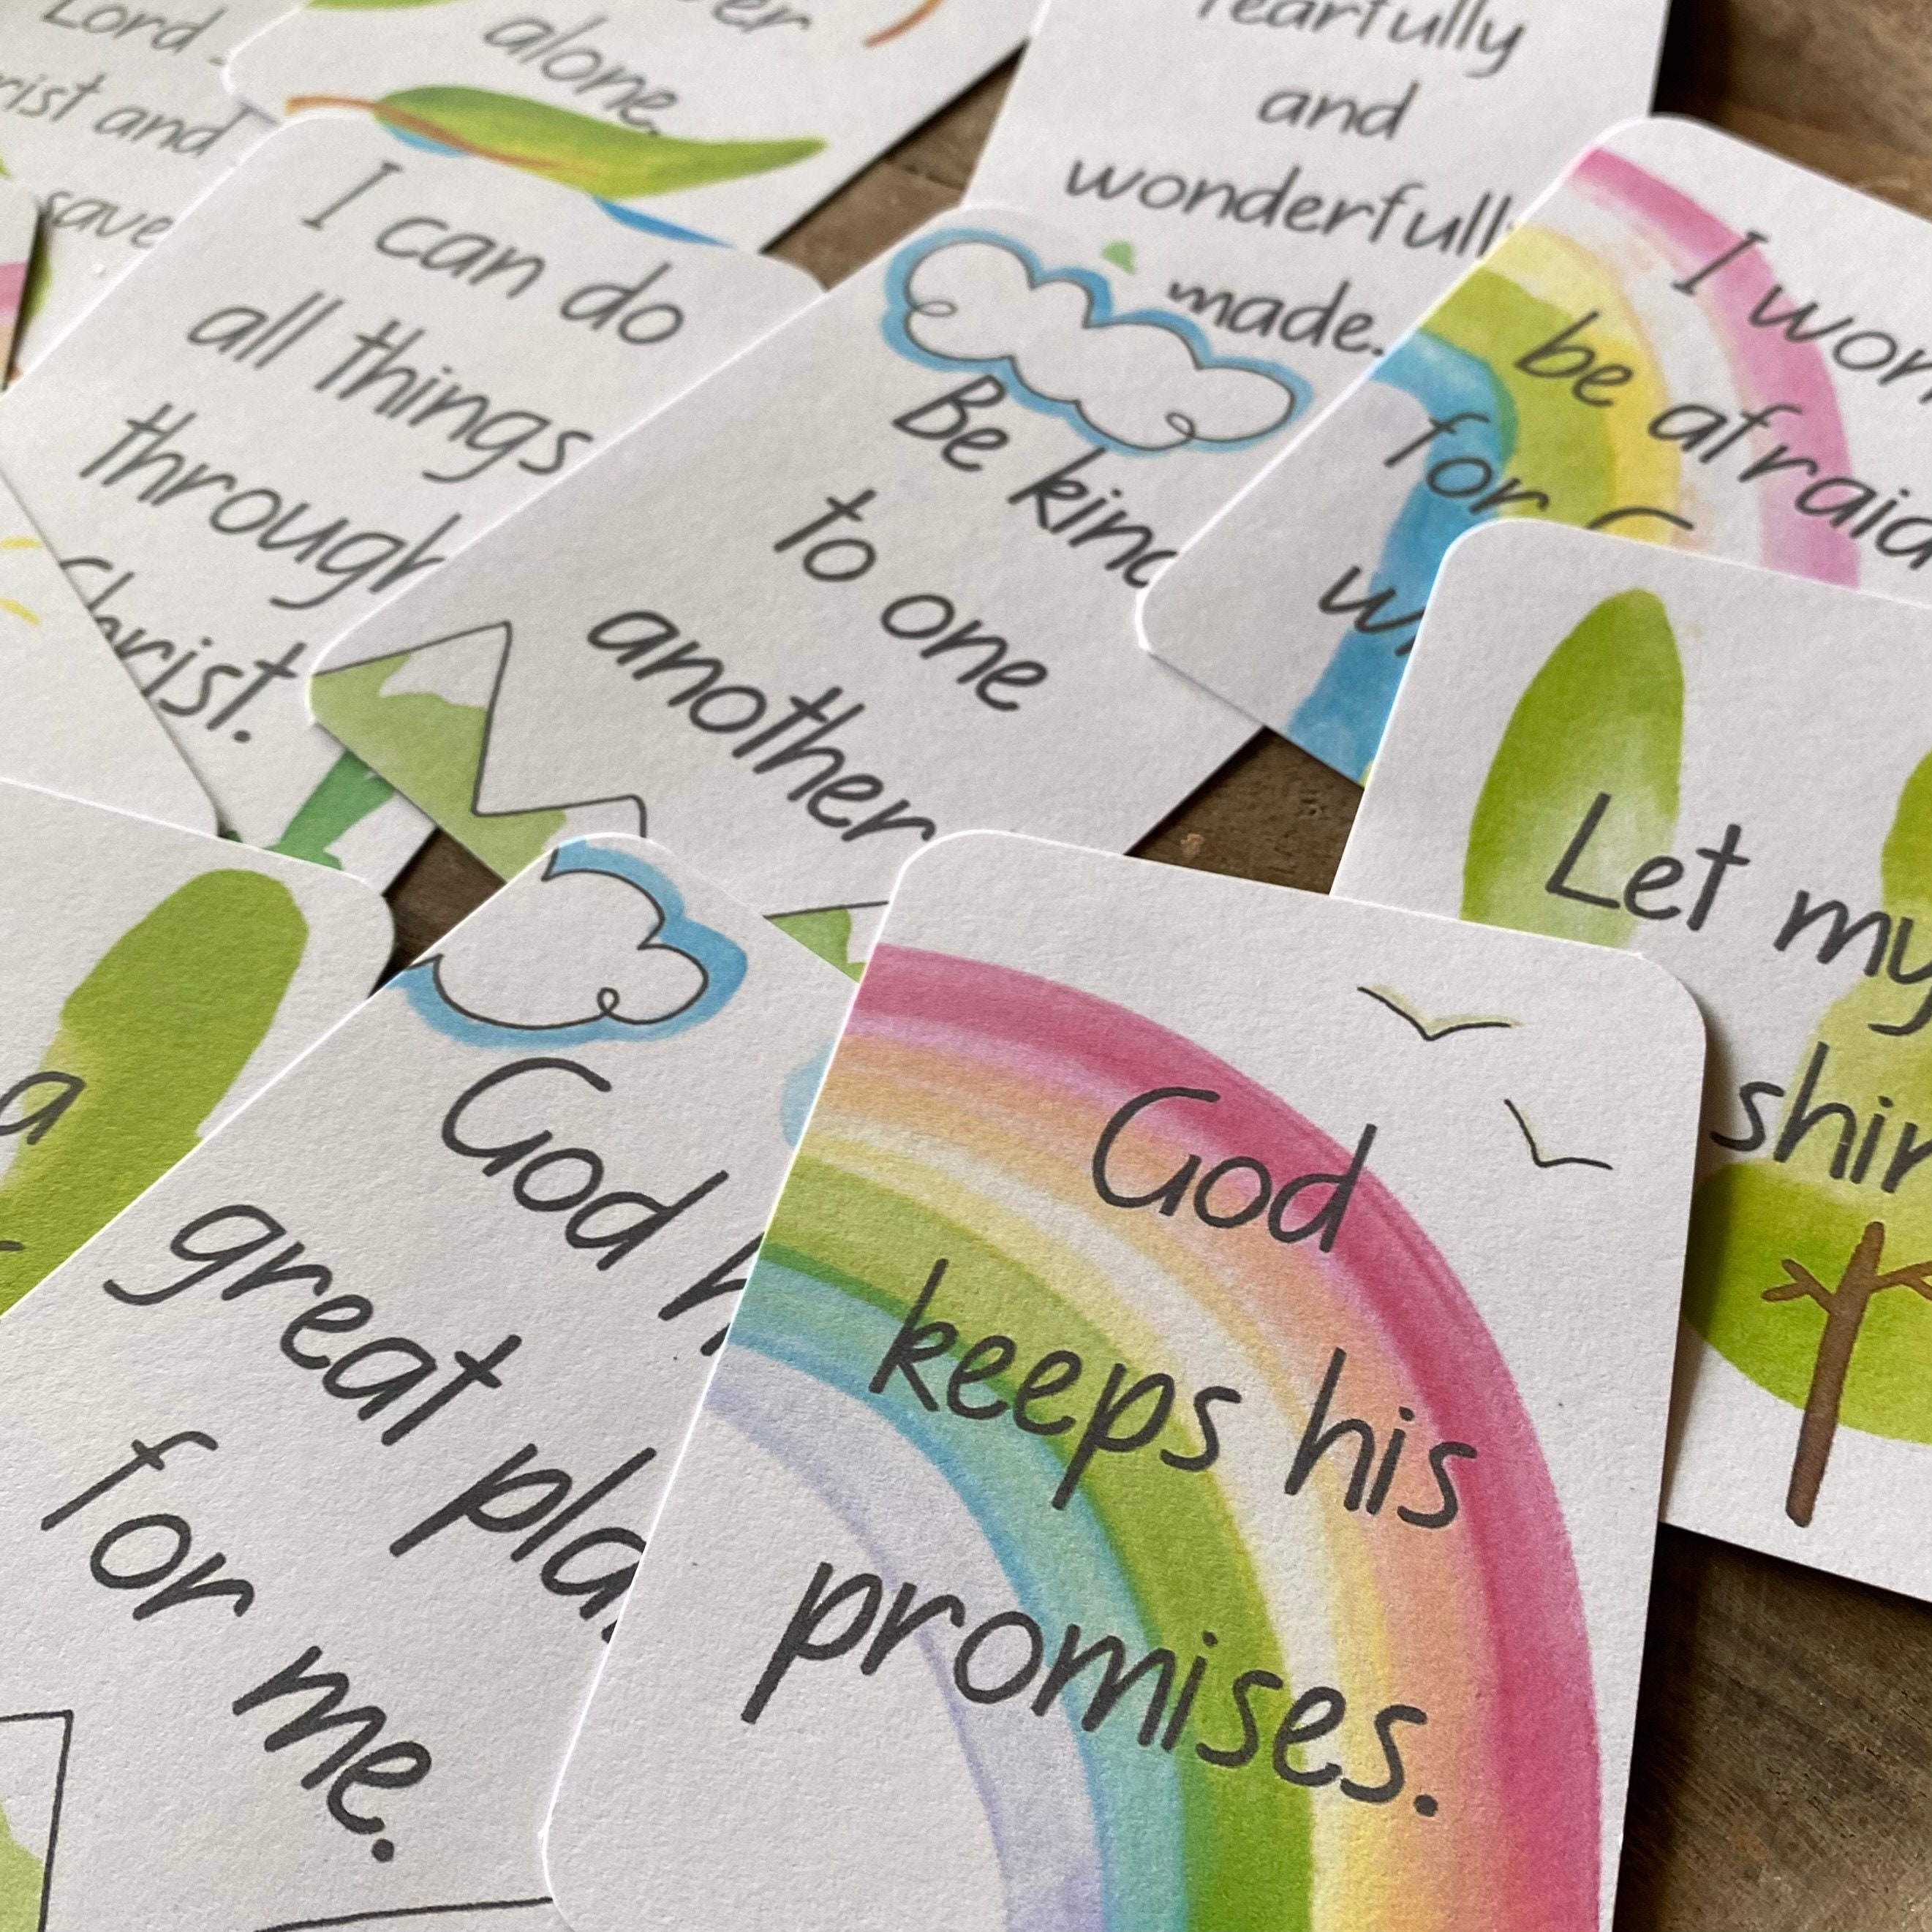 Lord
and
save
alone.
fearfully
and
wonderfully
made.
I can do
all things
through
Christ.
Be kind
to one
another
I won
be afraid
for G
w
Let my
shin
a
God h
great pla
for me.
God
keeps his
promises.